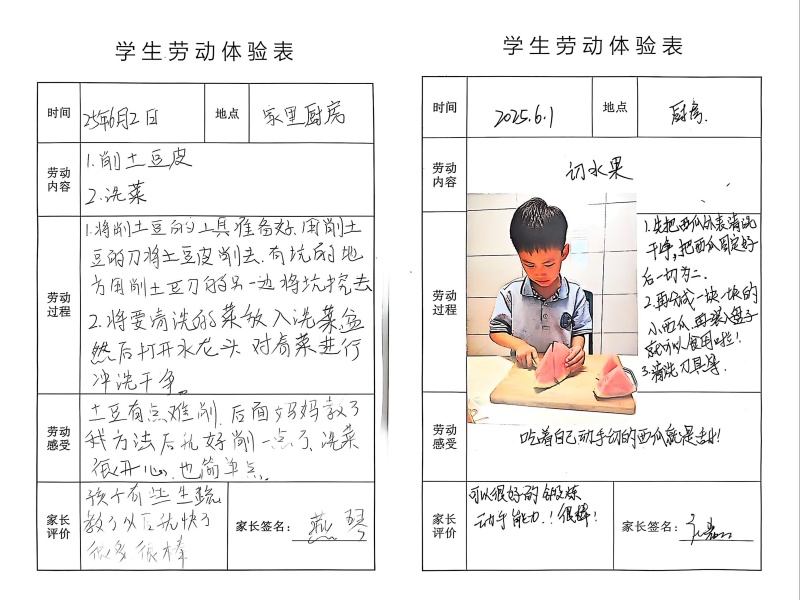 学生劳动体验表
时间
25年6月2日
地点
家里厨房
劳动
内容
1.削土豆皮
2.洗菜
劳动
过程
1.将削土豆的工具准备好,用削土
豆的刀将土豆皮削去,有坑的地
方用削土豆刀的另一边将坑挖去
2.将要清洗的菜放入洗菜盆
然后打开水龙头 对着菜进行
冲洗干净.
劳动
感受
土豆有点难削,后面妈妈教了
我方法后就好削一点了,洗菜
很开心,也简单点.
家长
评价
孩子有些生疏
教了以后就快了
很多很棒
家长签名:
燕琴
学生劳动体验表
时间
2025.6.1
地点
厨房.
劳动
内容
切水果
劳动
过程
1.先把西瓜外表清洗
干净,把西瓜固定好
后一切为二.
2.再分成一块一块的
小西瓜,再装入盘子
就可以食用啦!
3.清洗刀具等.
劳动
感受
吃着自己动手切的西瓜就是甜!
家长
评价
可以很好的锻炼
动手能力.!很棒!
家长签名: